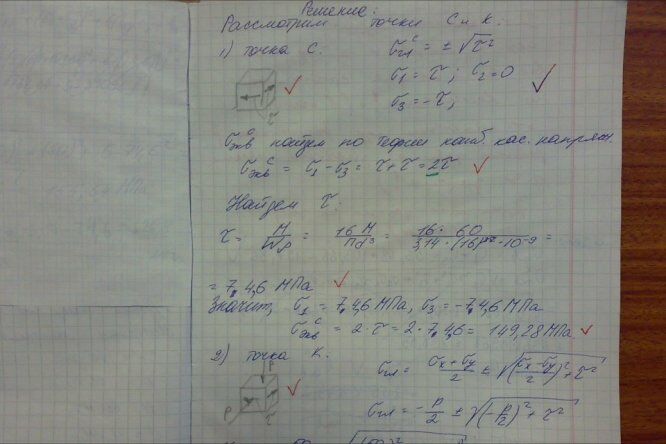 Решение:
Рассмотрим точки С и К.
1) точка С.
σ_гл^с = ± √τ²
σ₁ = τ ; σ₂ = 0
σ₃ = -τ ;
τ
σ_экв^с найдем по теории наиб. кас. напряж.
σ_экв^с = σ₁ - σ₃ = τ + τ = 2τ
Найдем τ:
τ = M/Wp = 16 M/Пd³ = 16 · 60/3,14 · (16) · 10⁻⁹ =
= 74,6 МПа
Значит, σ₁ = 74,6 МПа, σ₃ = -74,6 МПа
σ_экв^с = 2 · τ = 2 · 74,6 = 149,28 МПа
2) точка К.
P
P
τ
σ_гл = (σx + σy)/2 ± √((σx - σy)/2)² + τ²
σ_гл = - P/2 ± √(- P/2)² + τ²